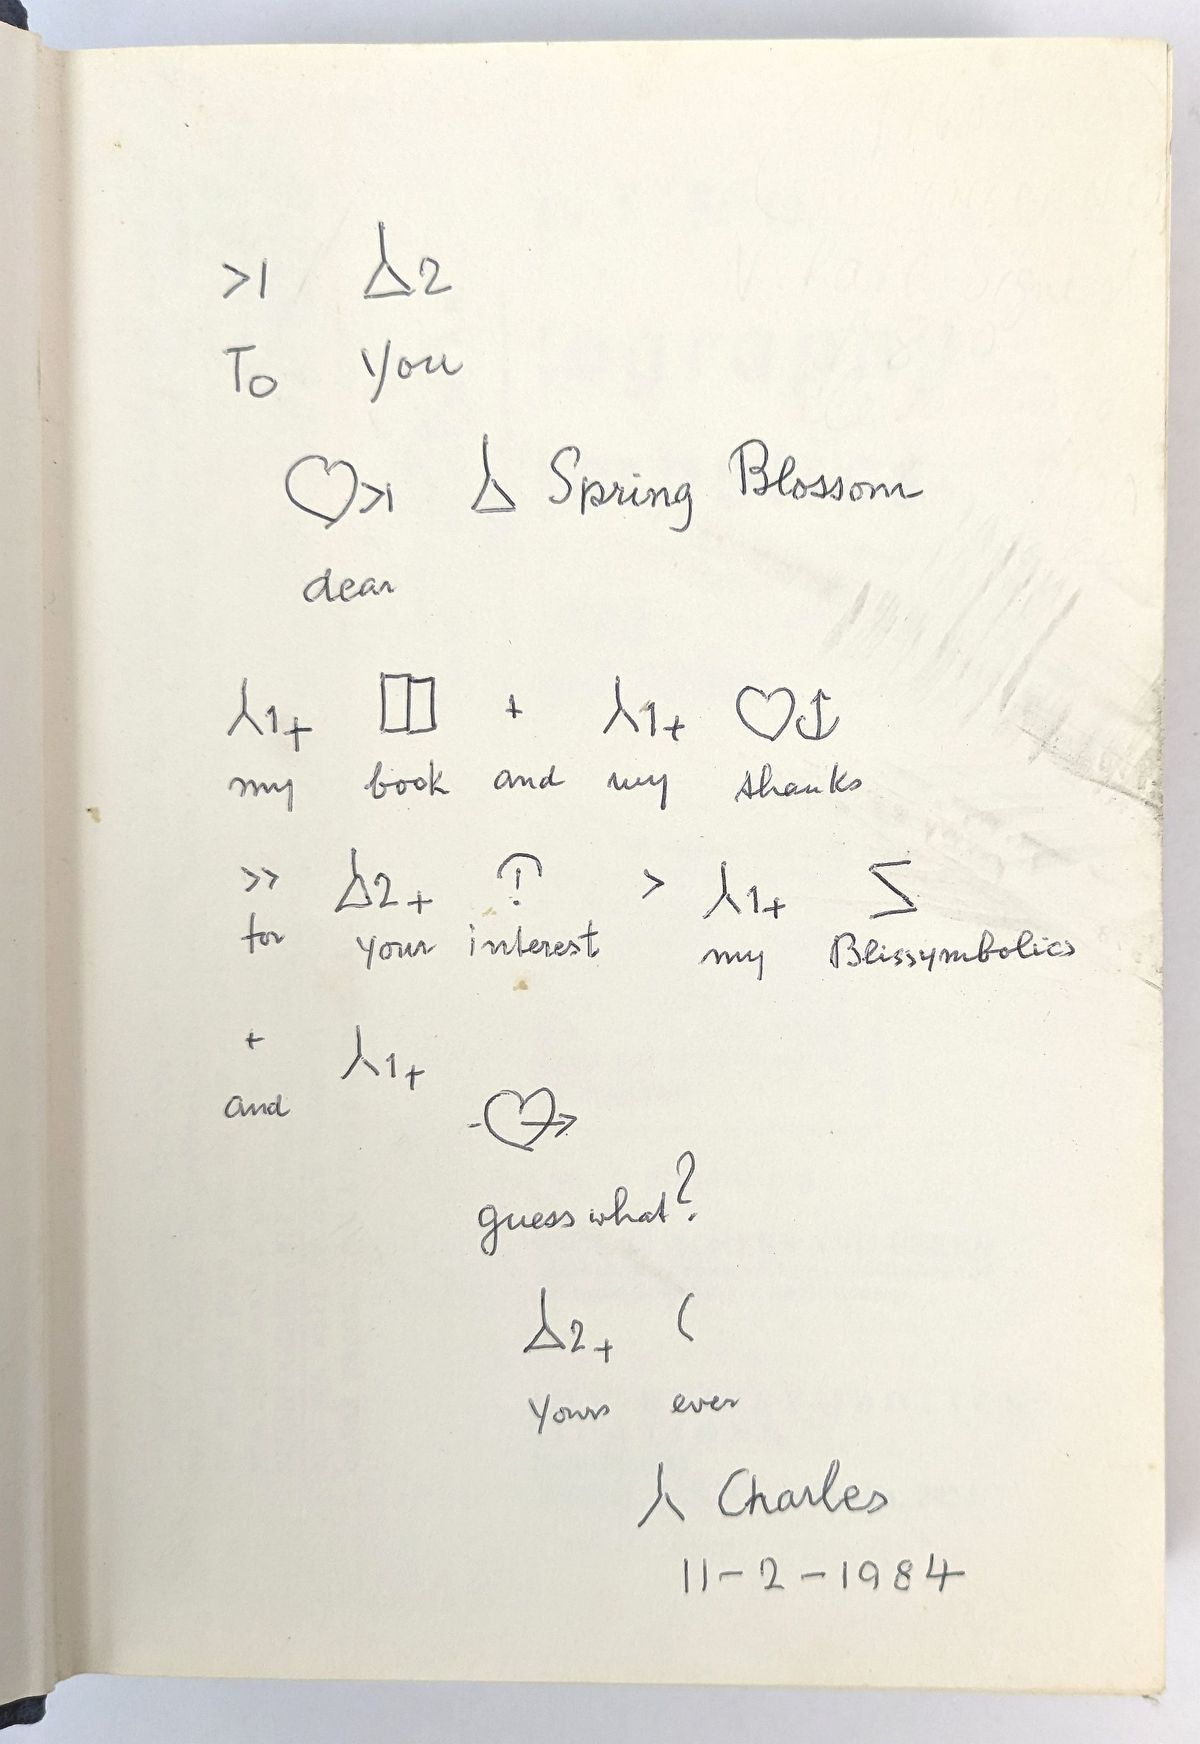 >1 2
To you
>1 Spring Blossom
dear
1+ + 1+
my book and my thanks
>> 2+ > 1+
for your interest my Blissymbolics
+ 1+
and
guess what?
2+ (
yours ever
Charles
11-2-1984